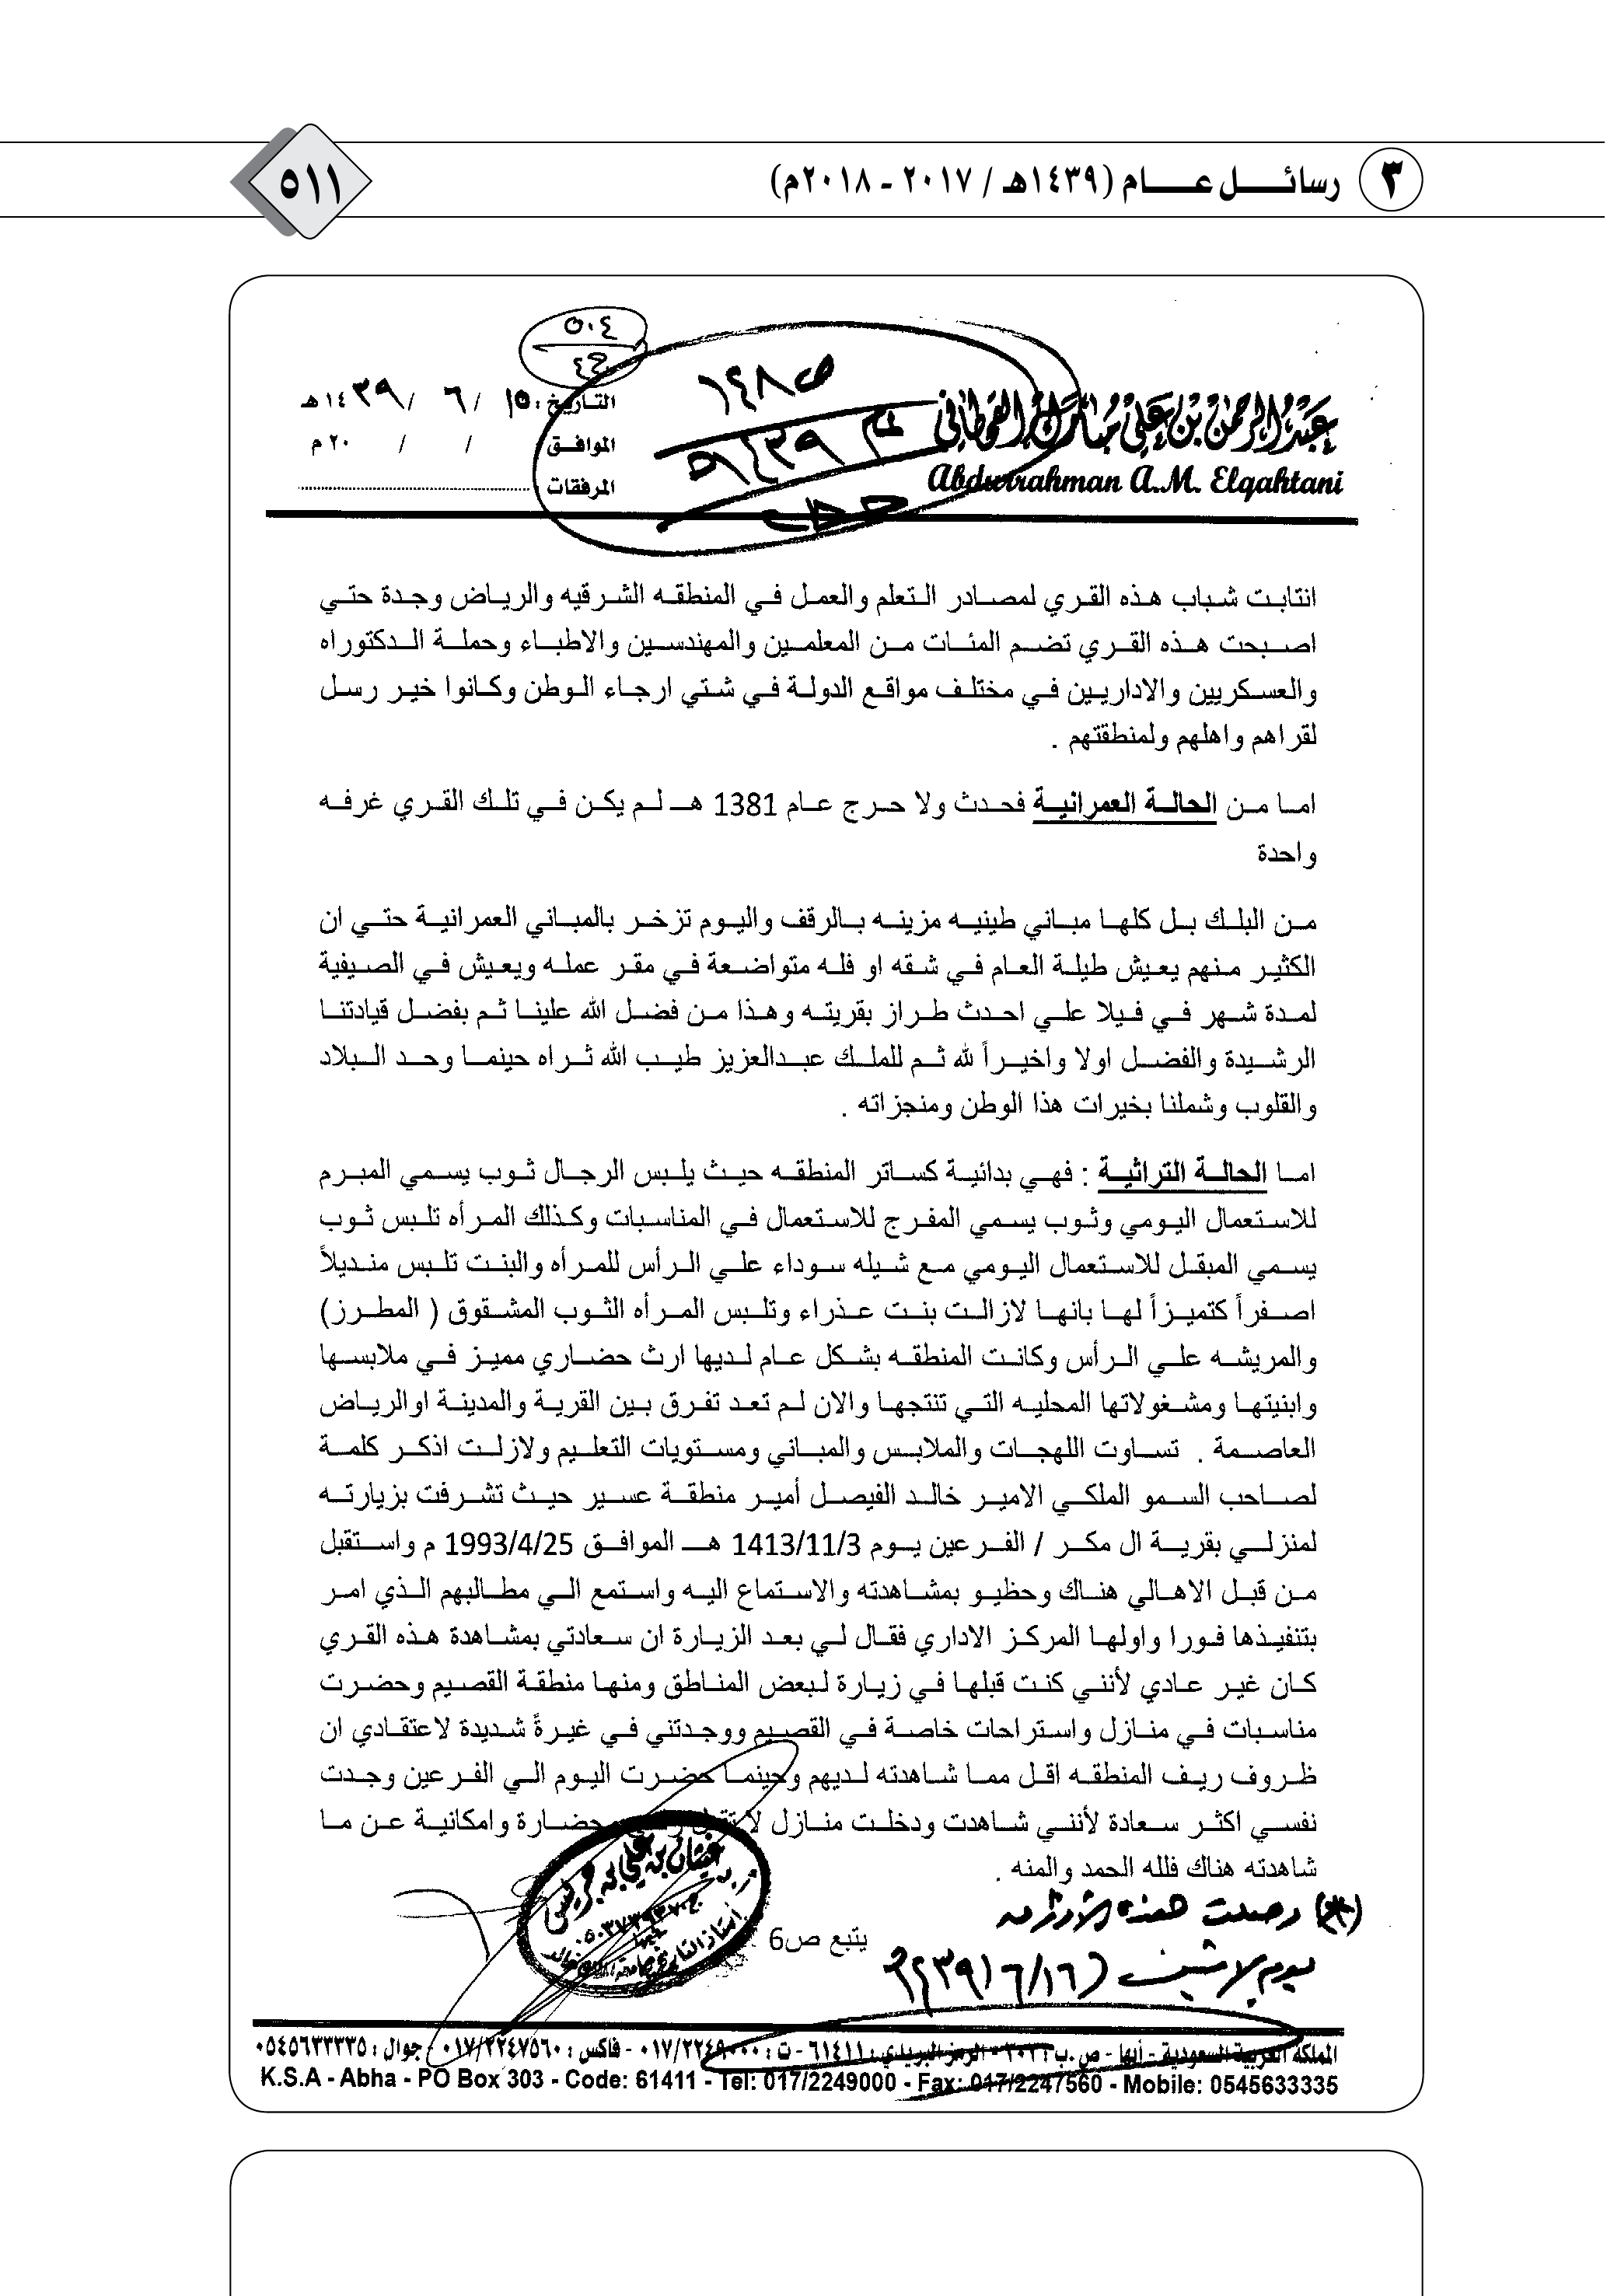 ٣ رسائل عام (١٤٣٩هـ / ٢٠١٧ - ٢٠١٨م)
٥١١
عبدالرحمن بن علي مبارك القحطاني
Abdurrahman A.M. Elqahtani
٥٠٤
التاريخ : ١٥ / ٦ / ١٤٣٩هـ
الموافق : / / ٢٠ م
المرفقات
انتابت شباب هذه القري لمصادر التعلم والعمل في المنطقه الشرقيه والرياض وجدة حتي
اصبحت هذه القري تضم المئات من المعلمين والمهندسين والاطباء وحملة الدكتوراه
والعسكريين والاداريين في مختلف مواقع الدولة في شتي ارجاء الوطن وكانوا خير رسل
لقراهم واهلهم ولمنطقتهم .
اما من الحالة العمرانية فحدث ولا حرج عام 1381 هـ لم يكن في تلك القري غرفه
واحدة
من البلك بل كلها مباني طينيه مزينه بالرقف واليوم تزخر بالمباني العمرانية حتي ان
الكثير منهم يعيش طيلة العام في شقه او فله متواضعة في مقر عمله ويعيش في الصيفية
لمدة شهر في فيلا علي احدث طراز بقريته وهذا من فضل الله علينا ثم بفضل قيادتنا
الرشيدة والفضل اولا واخيراً لله ثم للملك عبدالعزيز طيب الله ثراه حينما وحد البلاد
والقلوب وشملنا بخيرات هذا الوطن ومنجزاته .
اما الحالة التراثية : فهي بدائية كسائر المنطقه حيث يلبس الرجال ثوب يسمي المبرم
للاستعمال اليومي وثوب يسمي المفرج للاستعمال في المناسبات وكذلك المرأه تلبس ثوب
يسمي المبقل للاستعمال اليومي مع شيله سوداء علي الرأس للمرأه والبنت تلبس منديلاً
اصفراً كتميزاً لها بانها لازالت بنت عذراء وتلبس المرأه الثوب المشقوق ( المطرز)
والمريشه علي الرأس وكانت المنطقه بشكل عام لديها ارث حضاري مميز في ملابسها
وابنيتها ومشغولاتها المحليه التي تنتجها والان لم تعد تفرق بين القرية والمدينة اوالرياض
العاصمة . تساوت اللهجات والملابس والمباني ومستويات التعليم ولازلت اذكر كلمة
لصاحب السمو الملكي الامير خالد الفيصل أمير منطقة عسير حيث تشرفت بزيارته
لمنزلي بقرية ال مكر / الفرعين يوم 1413/11/3 هـ الموافق 1993/4/25 م واستقبل
من قبل الاهالي هناك وحظيو بمشاهدته والاستماع اليه واستمع الي مطالبهم الذي امر
بتنفيذها فورا واولها المركز الاداري فقال لي بعد الزيارة ان سعادتي بمشاهدة هذه القري
كان غير عادي لأنني كنت قبلها في زيارة لبعض المناطق ومنها منطقة القصيم وحضرت
مناسبات في منازل واستراحات خاصة في القصيم ووجدتني في غيرةً شديدة لاعتقادي ان
ظروف ريف المنطقه اقل مما شاهدته لديهم وحينما حضرت اليوم الي الفرعين وجدت
نفسي اكثر سعادة لأنني شاهدت ودخلت منازل لا تقل حضارة وامكانية عن ما
شاهدته هناك فلله الحمد والمنه .
وصلت هذه الأوراق
يوم الاثنين (١٦/٦/١٤٣٩هـ)
يتبع ص6
المملكة العربية السعودية - أبها - ص.ب ٣٠٣ - الرمز البريدي : ٦١٤١١ - ت : ٠١٧/٢٢٤٩٠٠٠ - فاكس : ٠١٧/٢٢٤٧٥٦٠ - جوال : ٠٥٤٥٦٣٣٣٣٥
K.S.A - Abha - PO Box 303 - Code: 61411 - Tel: 017/2249000 - Fax: 017/2247560 - Mobile: 0545633335